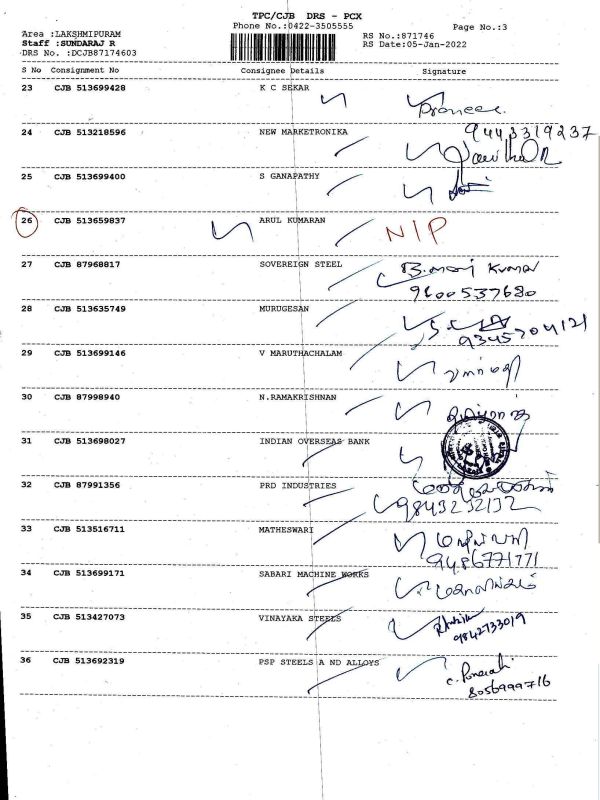 TPC/CJB DRS - PCX
Phone No.:0422-3505555
Page No.:3
Area :LAKSHMIPURAM
Staff :SUNDARAJ R
DRS No. :DCJB87174603
RS No.:871746
RS Date:05-Jan-2022
S No Consignment No Consignee Details Signature
23 CJB 513699428 K C SEKAR
24 CJB 513218596 NEW MARKETRONIKA 9443319237
25 CJB 513699400 S GANAPATHY
26 CJB 513659837 ARUL KUMARAN NIP
27 CJB 87968817 SOVEREIGN STEEL B.mani Kumar
9600537680
28 CJB 513635749 MURUGESAN
9345704121
29 CJB 513699146 V MARUTHACHALAM வளர்மதி
30 CJB 87998940 N.RAMAKRISHNAN
31 CJB 513698027 INDIAN OVERSEAS BANK
32 CJB 87991356 PRD INDUSTRIES
9843232132
33 CJB 513516711 MATHESWARI
9486771771
34 CJB 513699171 SABARI MACHINE WORKS
35 CJB 513427073 VINAYAKA STEELS
9842733019
36 CJB 513692319 PSP STEELS A ND ALLOYS
8056999716